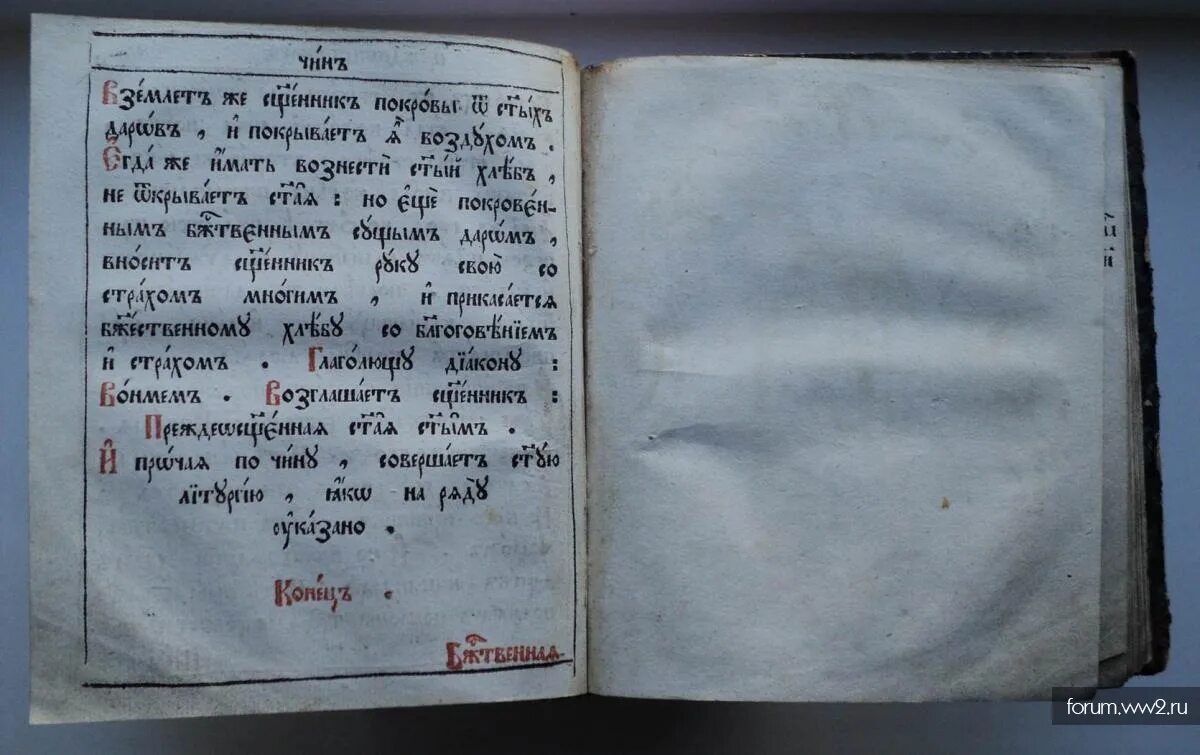 чи́нъ
Взе́млетъ же сщ҃е́нникъ покро́вы ѿ ст҃ы́хъ
даро́въ , и҆ покрыва́етъ ѧ҆̀ возду́хомъ .
Е҆гда́ же и҆́мать вознестѝ ст҃ы́й хлѣ́бъ ,
не ѿкрыва́етъ ст҃а̑ѧ : но є҆щѐ покрове́н-
нымъ бж҃твеннымъ су́щымъ дарѡ́мъ ,
вно́ситъ сщ҃е́нникъ ру́ку свою̀ со
стра́хомъ мно́гимъ , и҆ прикаса́етсѧ
бж҃е́ственному хлѣ́бу со бл҃гоговѣ́нїемъ
и҆ стра́хомъ . Глаго́лющу дїа́кону :
Во́нмемъ . Возглаша́етъ сщ҃е́нникъ :
Преждеѡсщ҃е́ннаѧ ст҃а̑ѧ ст҃ы̑мъ .
И҆ прѡ́чаѧ по чи́ну , соверша́етъ ст҃у́ю
лїтургі́ю , ꙗ҆́кѡ на рѧду̀
ѹ҆ка́зано .
Коне́цъ .
Бж҃твеннаѧ
forum.ww2.ru